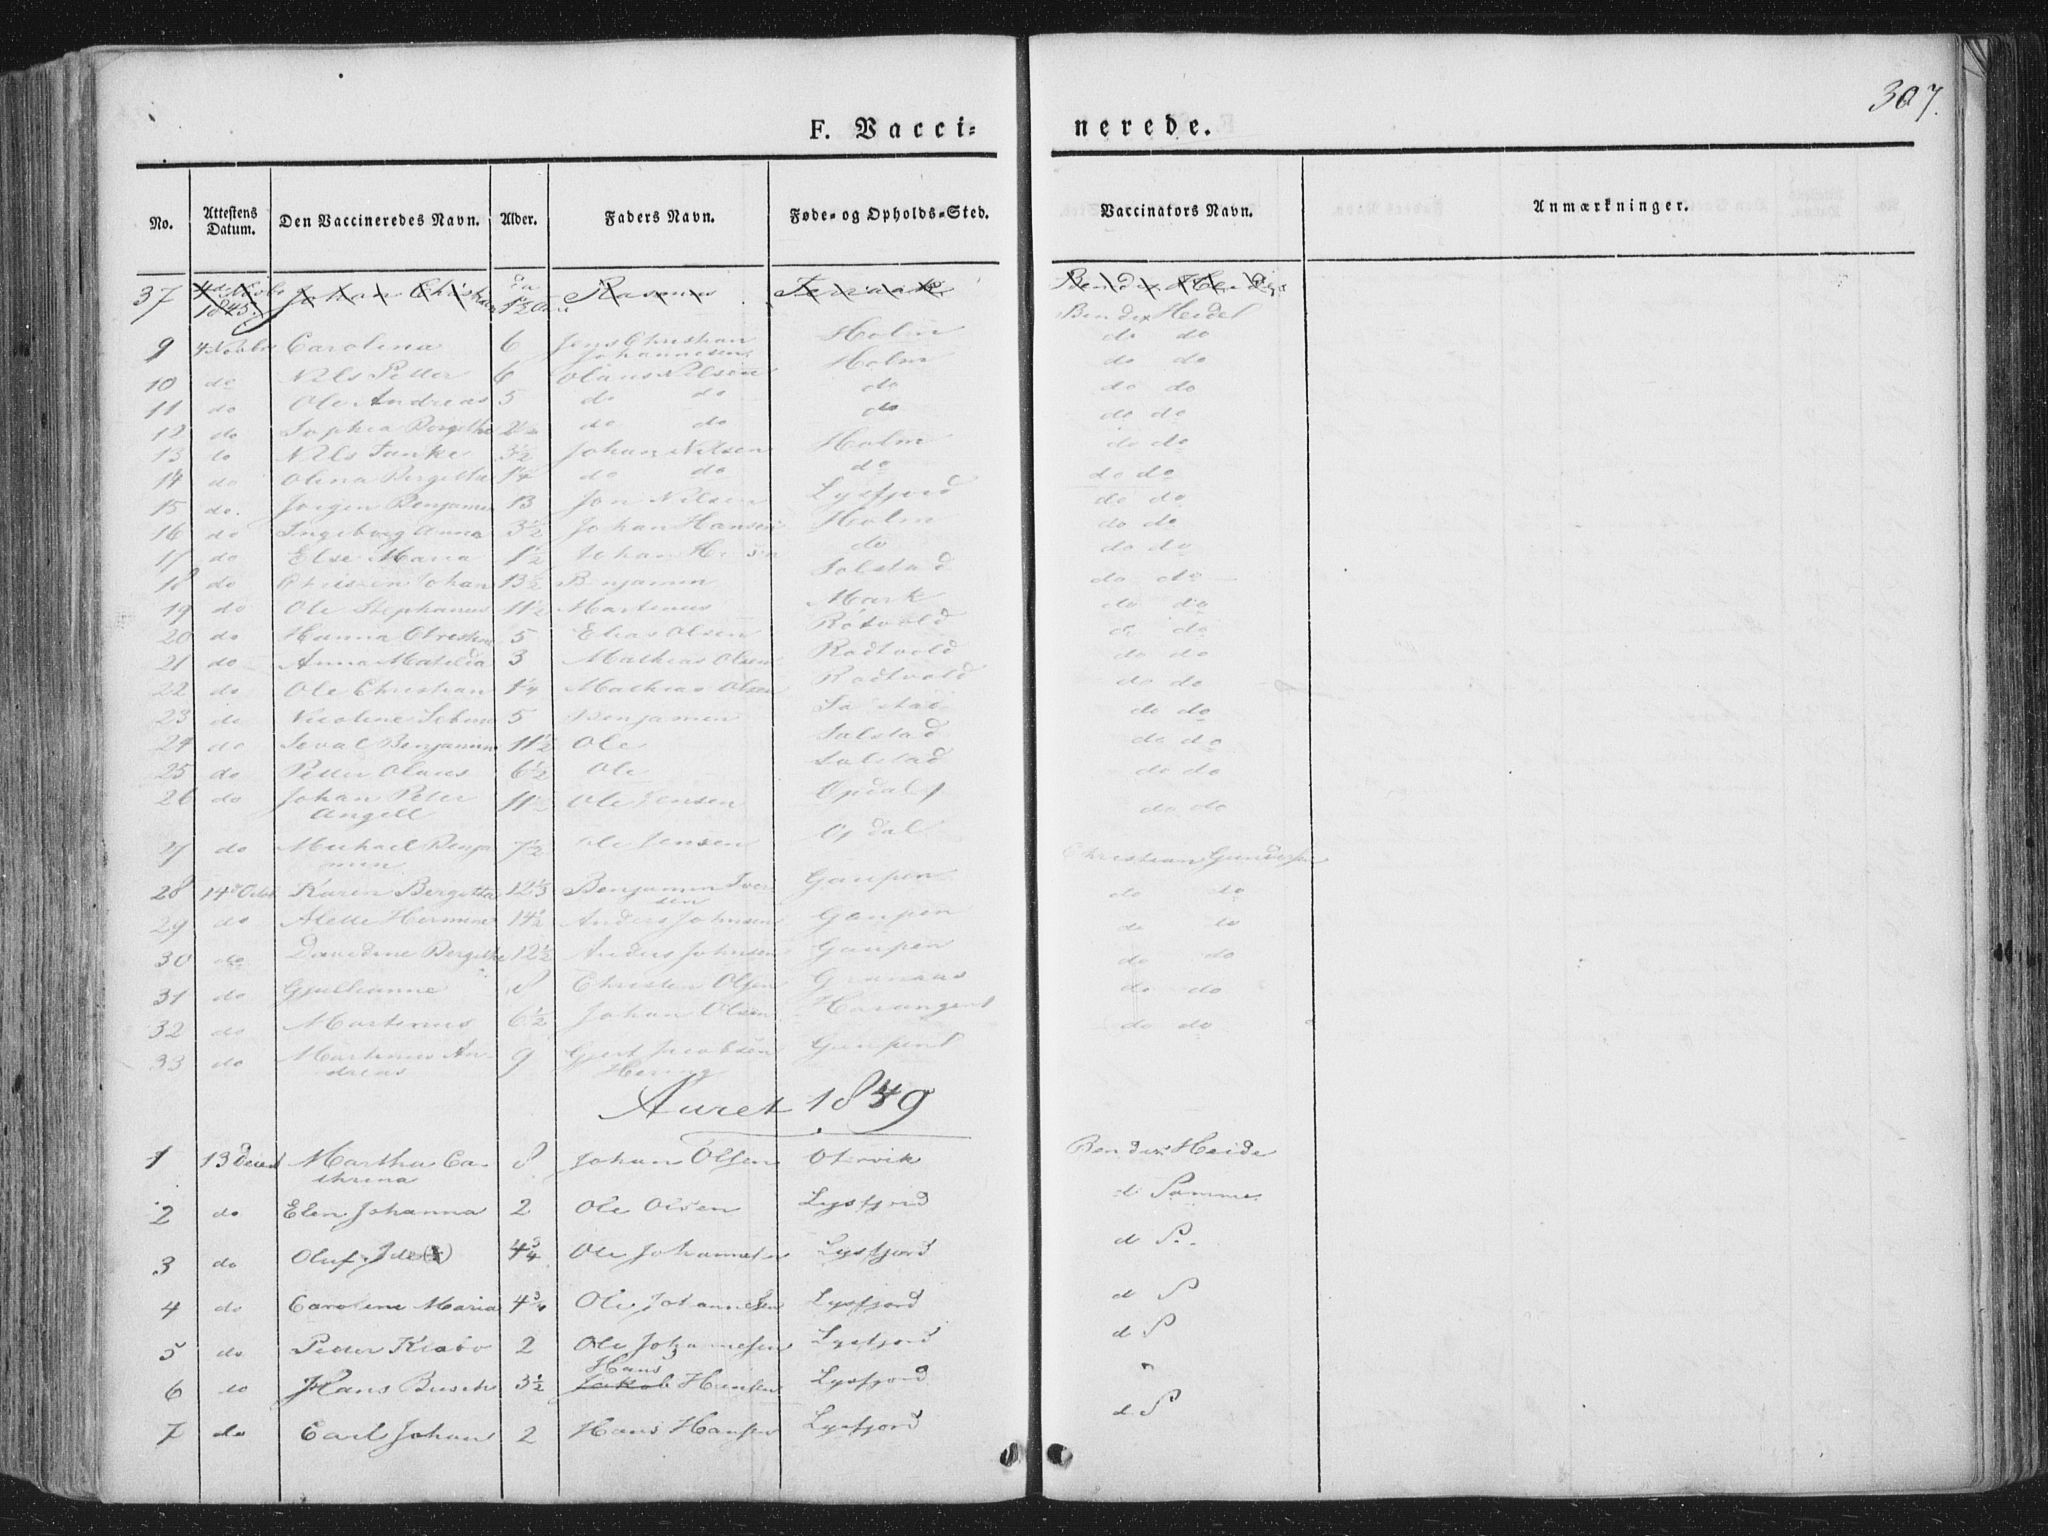 307.
F. Vacci= nerede.
No. Attestens Datum. Den Vaccineredes Navn. Alder. Faders Navn. Føde= og Opholds=Sted. Vaccinators Navn. Anmærkninger.
37 4de Novbr 1845. Johan Christian 1½ Rasmus
Bendix Heide
9 4 Novbr Carolina 6 Jens Christian Johannesen Holm do do
10 do Nils Petter 6 Olaus Nilsen Holm do do
11 do Ole Andreas 5 do do do do do
12 do Sophia Bergithe do do do do do
13 do Nils Tanke 3½ Johan Nilsen Holm do do
14 do Olina Bergitta 1¼ do do do do do
15 do. Jørgen Benjamin 13 Jon Nilsen Lysfjord do do
16 do Ingeborg Anna 3½ Johan Hansen Holm do do
17 do Else Maria 1½ Johan do do do
18 do Johan 13½ Benjamin Salstad do do
19 do Ole Stephanus 11½ Martinus Mark do do
20 do Hanna 5 Elias Olsen Røtvold do do
21 do Anna Matilda 3 Mathias Olsen Rødtvold do do
22 do Ole Christian 1¼ Mathias Olsen Rødtvold do do
23 do Nicoline 5 Benjamin do do
24 do Benjamin 11½ Ole Salstad do do
25 do Petter Olaus 6½ Ole Salstad do do
26 do Johan Peter Angell 11½ Ole Jensen Opdal do do
27 do Michael Benjamin 7½ Ole Jensen Opdal
28 14de Octbr Karen Bergitha 12⅓ Benjamin Iversen Gaupen Christian Gundersen
29 do Mette Hermine 14½ Anders Johnsen Gaupen do do
30 do Davidine Bergithe 12½ Anders Johnsen Gaupen do do
31 do Gjullianne 8 Christen Olsen Granaas do do
32 do Martinus 6½ Johan Olsen Horangent do do
33 do Martinus Andreas 9 Gjert Jacobsen Hering Gaupent do do
Auret 1849
1 13 Deced Martha Cathrina 8 Johan Olsen Otervik Bendix Heide
2 do Elen Johanna 2 Ole Olsen Lysfjord d Samme
3 do Oluf 4¾ Ole Johannesen Lysfjord d S.
4 do Caroline Maria 4¾ Ole Johannesen Lysfjord d S
5 do Petter Kiabo 2 Ole Johannesen Lysfjord d S
6 do Hans Busch 3½ Hans Jakob Hansen Lysfjord "
7 do Carl Johan 2 Hans Hansen Lysfjord d S